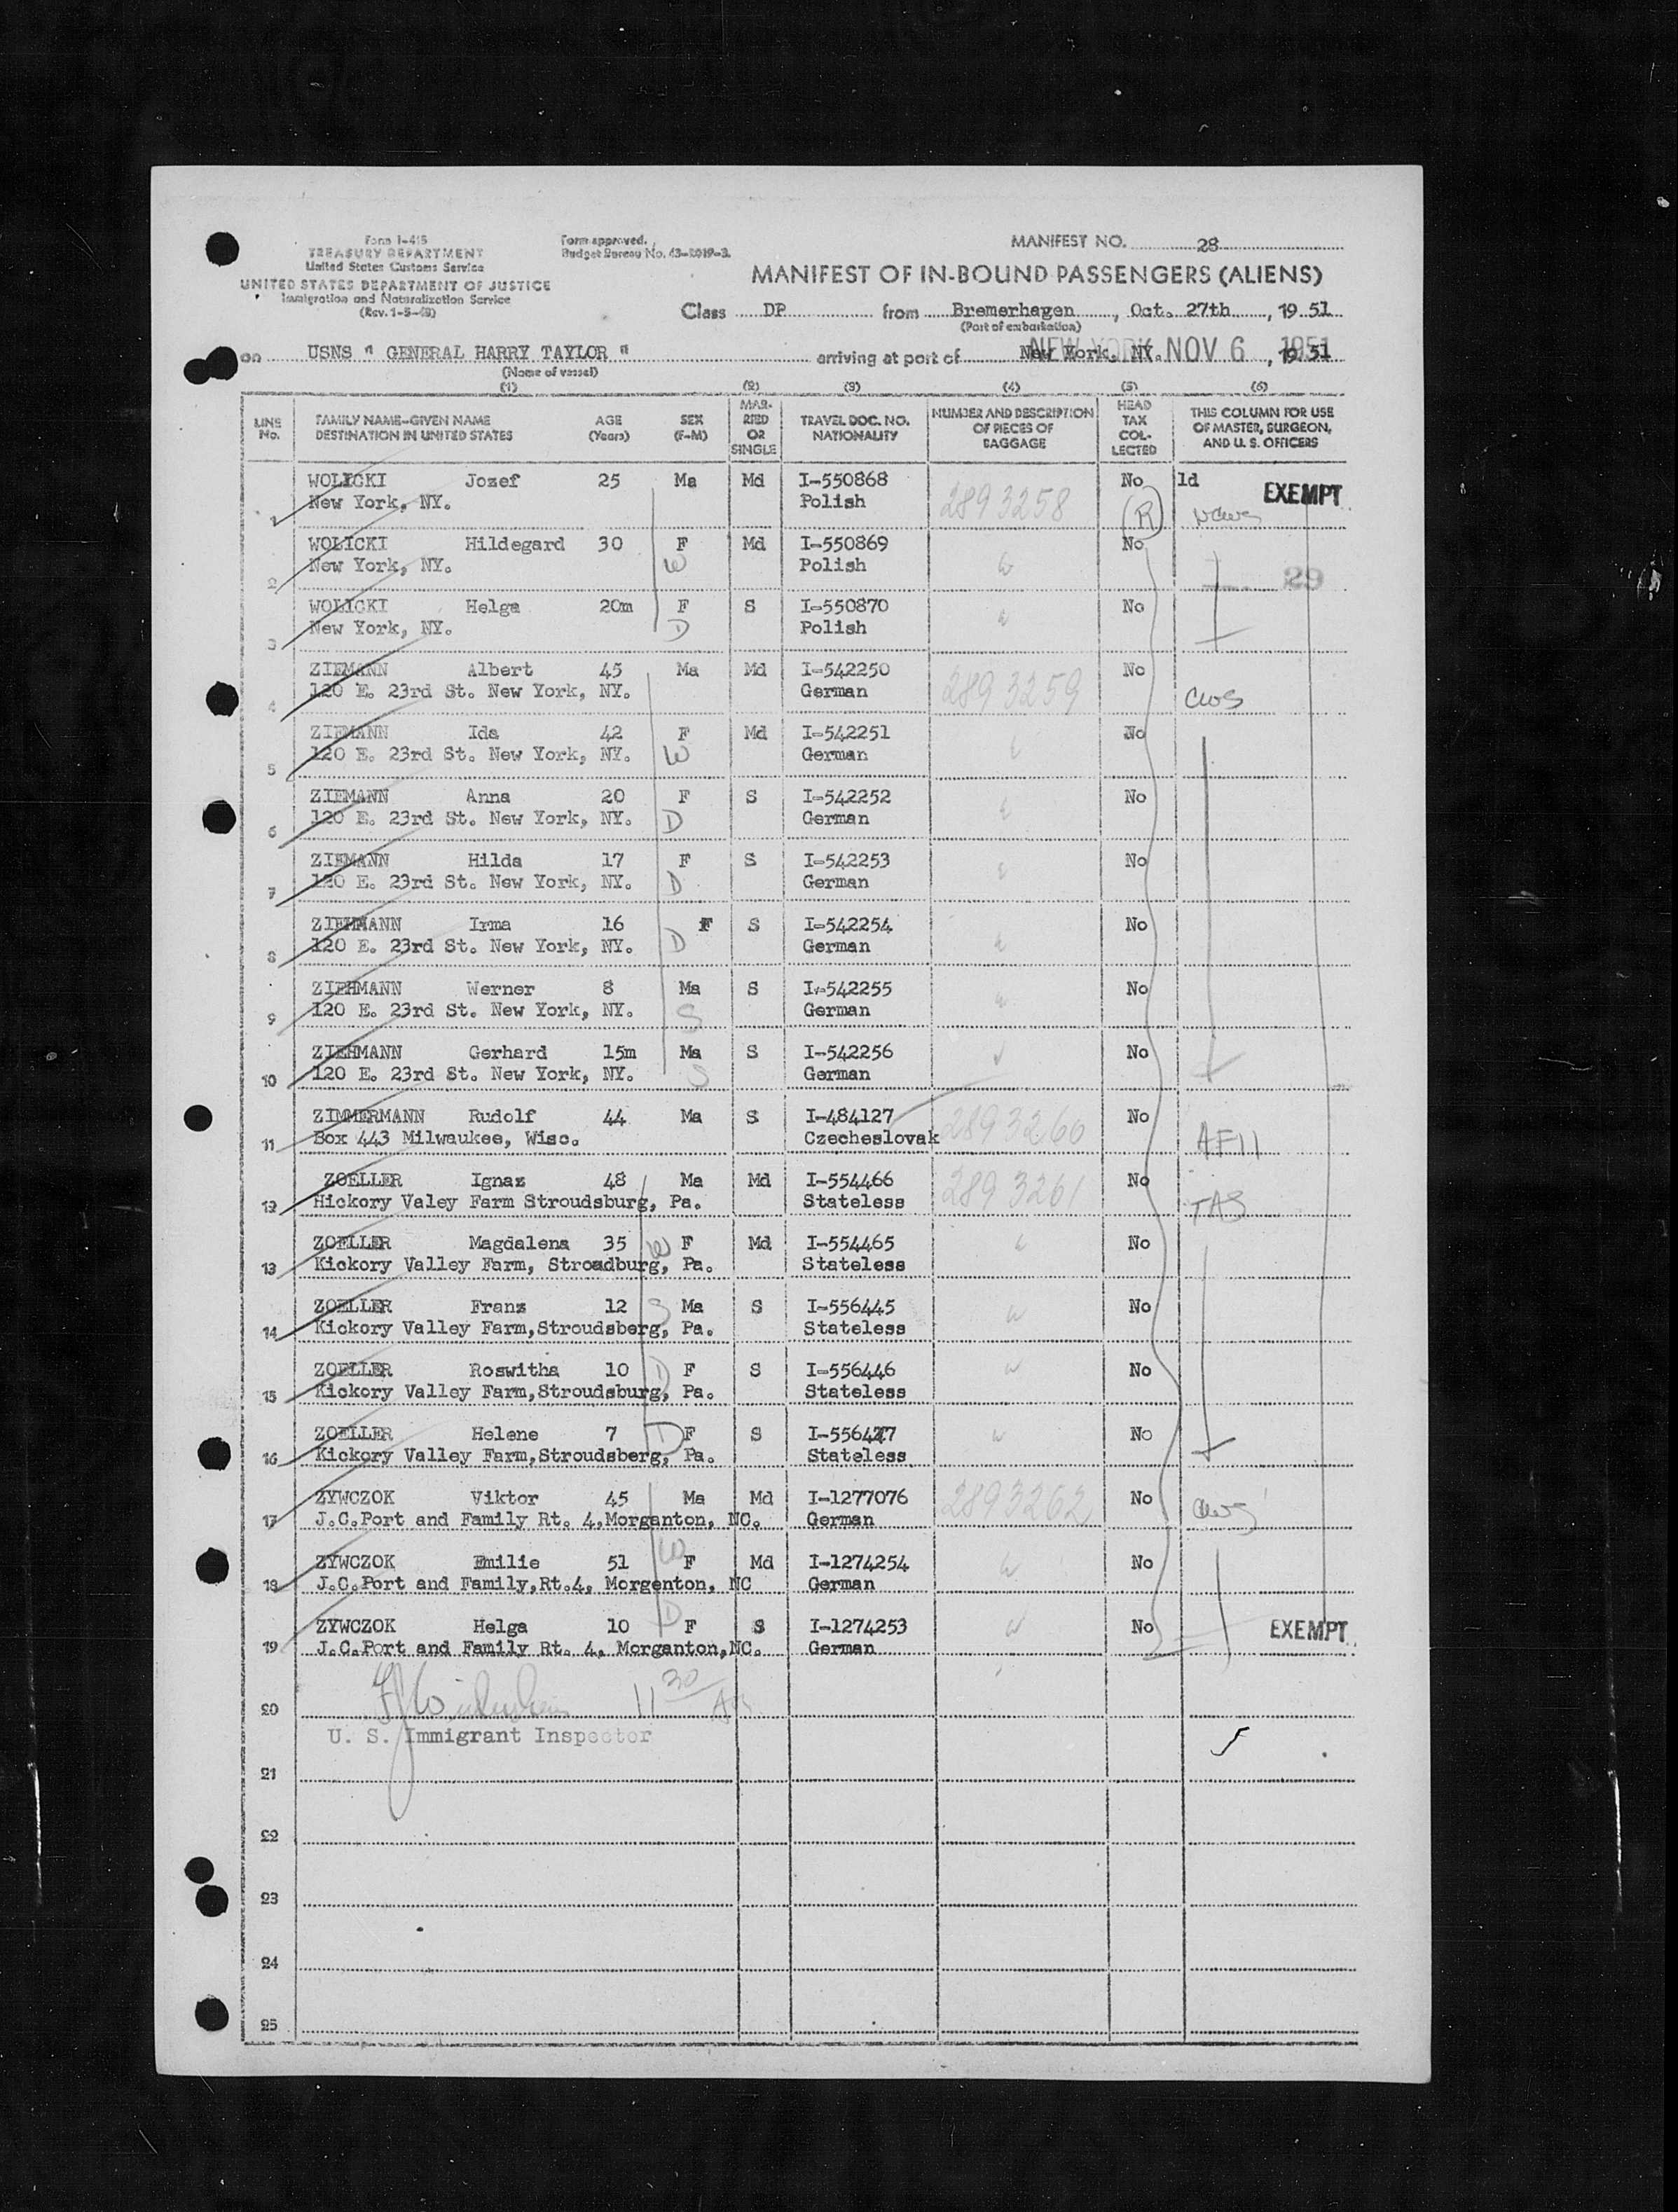 Form I-415
TREASURY DEPARTMENT
United States Customs Service
UNITED STATES DEPARTMENT OF JUSTICE
Immigration and Naturalization Service
(Rev. 1-5-48)
Form approved.
Budget Bureau No. 43-R019-3.
MANIFEST NO. 28
MANIFEST OF IN-BOUND PASSENGERS (ALIENS)
Class DP from Bremerhagen, Oct. 27th, 1951
(Port of embarkation)
on USNS " GENERAL HARRY TAYLOR " arriving at port of New York, NY. NEW YORK NOV 6 1951, 1951
(Name of vessel)
(1) (2) (3) (4) (5) (6)
LINE No. FAMILY NAME-GIVEN NAME DESTINATION IN UNITED STATES AGE (Years) SEX (F-M) MARRIED OR SINGLE TRAVEL DOC. NO. NATIONALITY NUMBER AND DESCRIPTION OF PIECES OF BAGGAGE HEAD TAX COLLECTED THIS COLUMN FOR USE OF MASTER, SURGEON, AND U. S. OFFICERS
WOLICKI Jozef 25 Ma Md I-550868 2893258 No 1d EXEMPT
1 New York, NY. Polish (R) NCWS
WOLICKI Hildegard 30 F Md I-550869 No
2 New York, NY. W Polish 29
WOLICKI Helga 20m F S I-550870 No
3 New York, NY. D Polish
ZIEMANN Albert 45 Ma Md I-542250 2893259 No
4 120 E. 23rd St. New York, NY. German CWS
ZIEMANN Ida 42 F Md I-542251 No
5 120 E. 23rd St. New York, NY. W German
ZIEMANN Anna 20 F S I-542252 No
6 120 E. 23rd St. New York, NY. D German
ZIEMANN Hilda 17 F S I-542253 No
7 120 E. 23rd St. New York, NY. D German
ZIEHMANN Irma 16 F S I-542254 No
8 120 E. 23rd St. New York, NY. D German
ZIEHMANN Werner 8 Ma S I-542255 No
9 120 E. 23rd St. New York, NY. S German
ZIEHMANN Gerhard 15m Ma S I-542256 No
10 120 E. 23rd St. New York, NY. S German
ZIMMERMANN Rudolf 44 Ma S I-484127 2893260 No
11 Box 443 Milwaukee, Wisc. Czecheslovak AFII
ZOELLER Ignaz 48 Ma Md I-554466 2893261 No
12 Hickory Valey Farm Stroudsburg, Pa. Stateless
ZOELLER Magdalena 35 W F Md I-554465 No
13 Kickory Valley Farm, Stroadburg, Pa. Stateless
ZOELLER Franz 12 S Ma S I-556445 No
14 Kickory Valley Farm,Stroudsberg, Pa. Stateless
ZOELLER Roswitha 10 D F S I-556446 No
15 Kickory Valley Farm,Stroudsburg, Pa. Stateless
ZOELLER Helene 7 D F S I-556447 No
16 Kickory Valley Farm,Stroudsberg, Pa. Stateless
ZYWCZOK Viktor 45 Ma Md I-1277076 2893262 No
17 J.C.Port and Family Rt. 4,Morganton, NC. German CWS
ZYWCZOK Emilie 51 W F Md I-1274254 No
18 J.C.Port and Family,Rt.4, Morgenton, NC German
ZYWCZOK Helga 10 D F S I-1274253 No EXEMPT
19 J.C.Port and Family Rt. 4, Morganton,NC. German
20 11 30
U. S. Immigrant Inspector
21
22
23
24
25